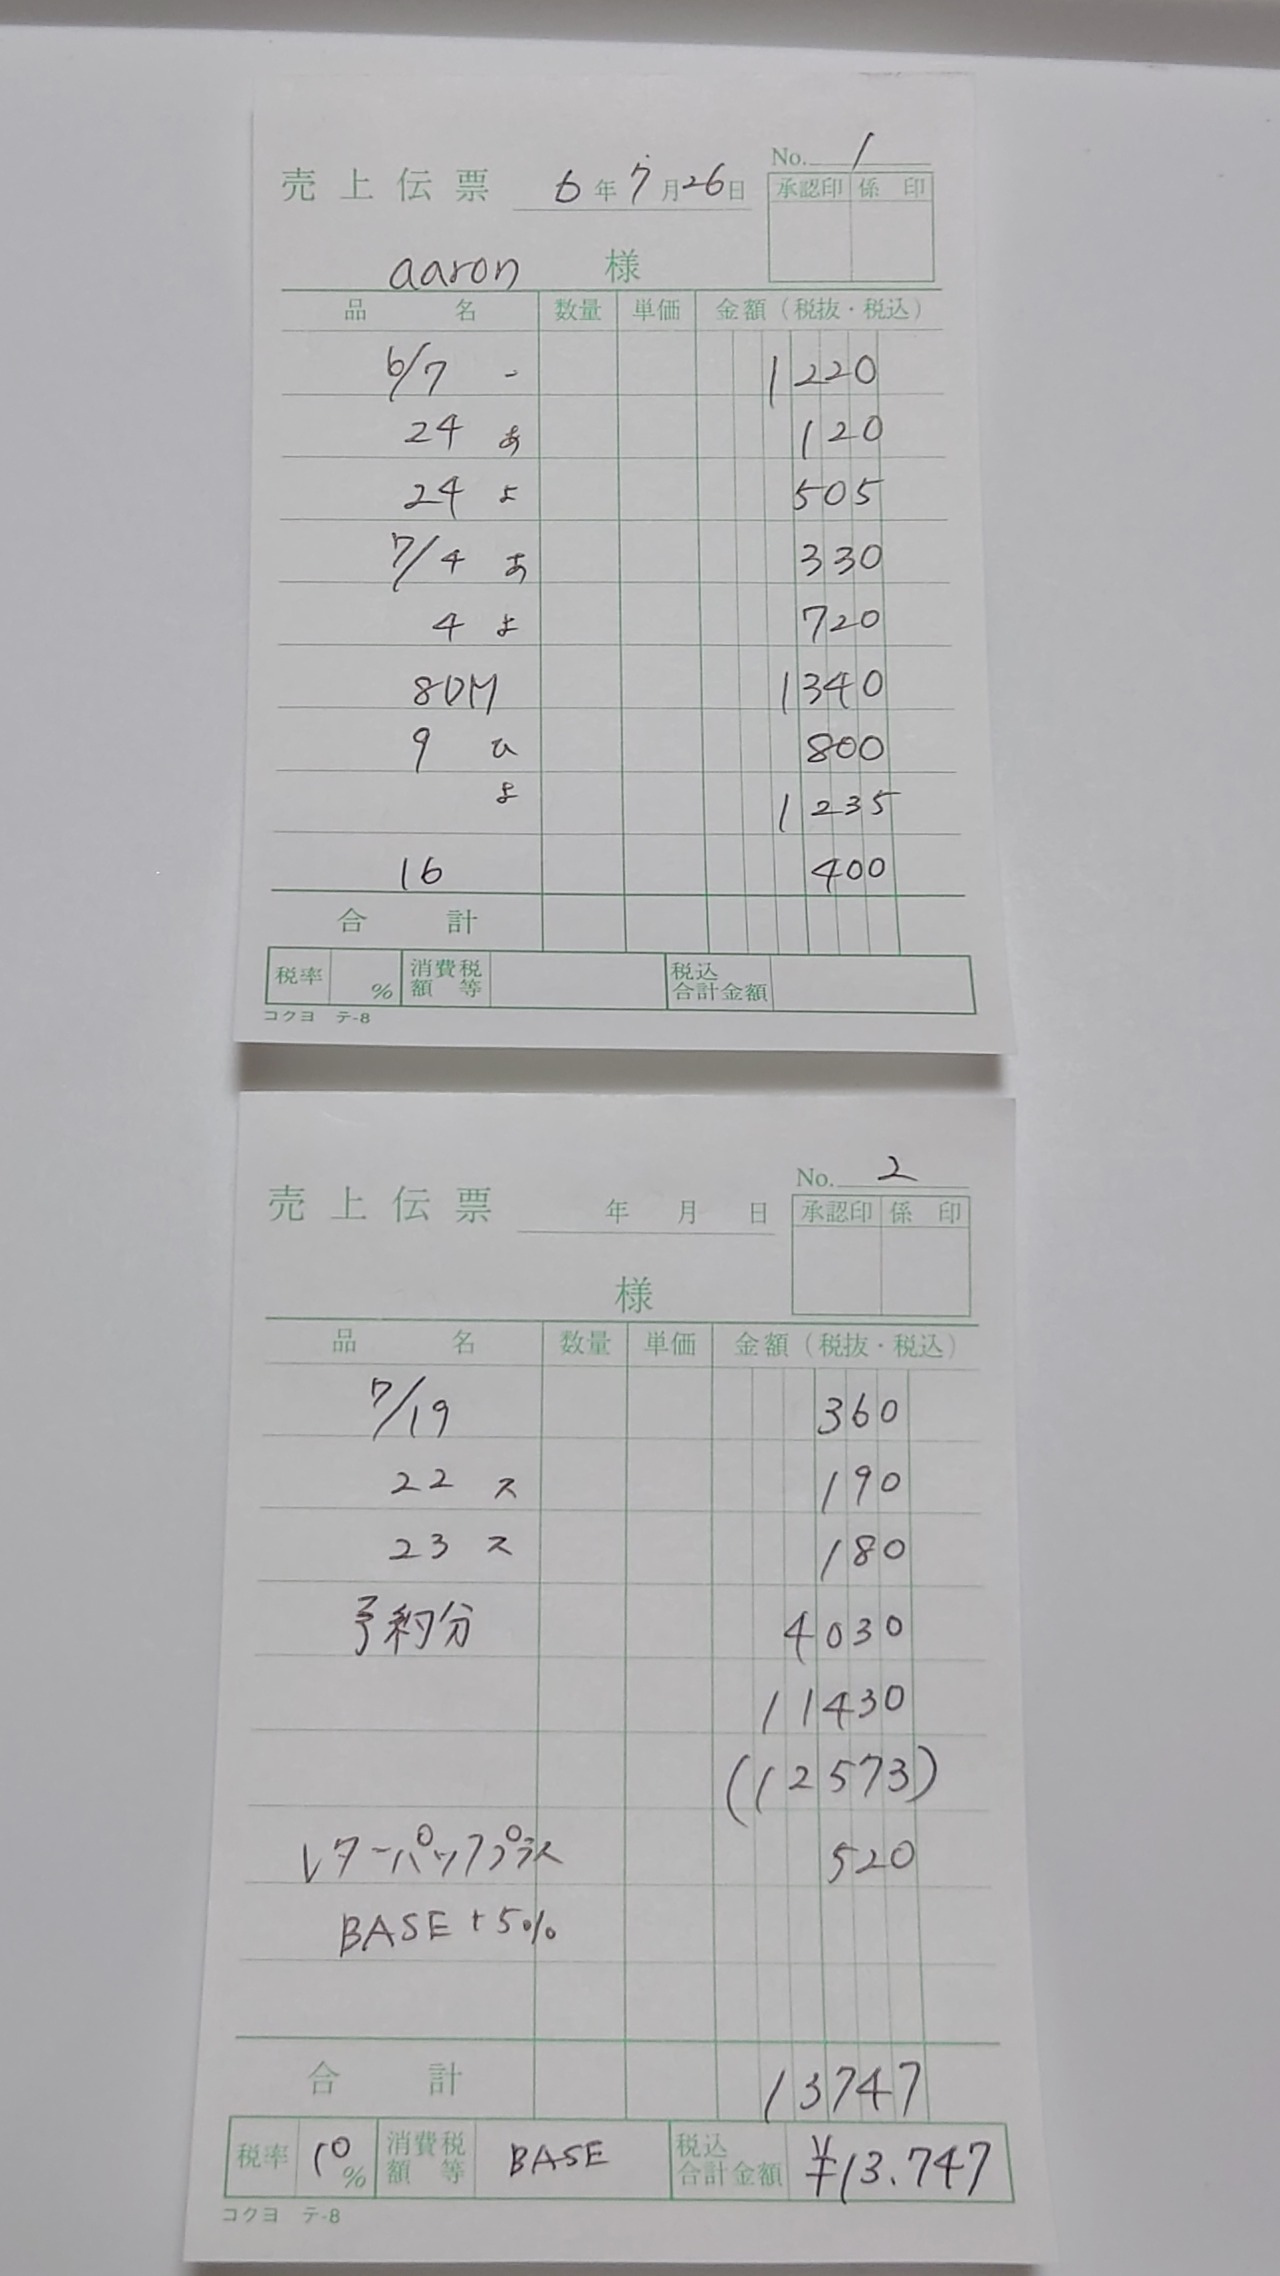 No. 1
売上伝票 6年7月26日
承認印 係印
aaron 様
品名 数量 単価 金額(税抜・税込)
6/7 - 1220
24 あ 120
24 よ 505
7/4 あ 330
4 よ 720
8DM 1340
9 ひ 800
よ 1235
16 400
合計
税率 % 消費税額等 税込合計金額
コクヨ テ-8
No. 2
売上伝票 年 月 日
承認印 係印
様
品名 数量 単価 金額(税抜・税込)
7/19 360
22 ス 190
23 ス 180
予約分 4030
11430
(12573)
レターパックプラス 520
BASE+5%
合計 13747
税率 10% 消費税額等 BASE 税込合計金額 ¥13.747
コクヨ テ-8